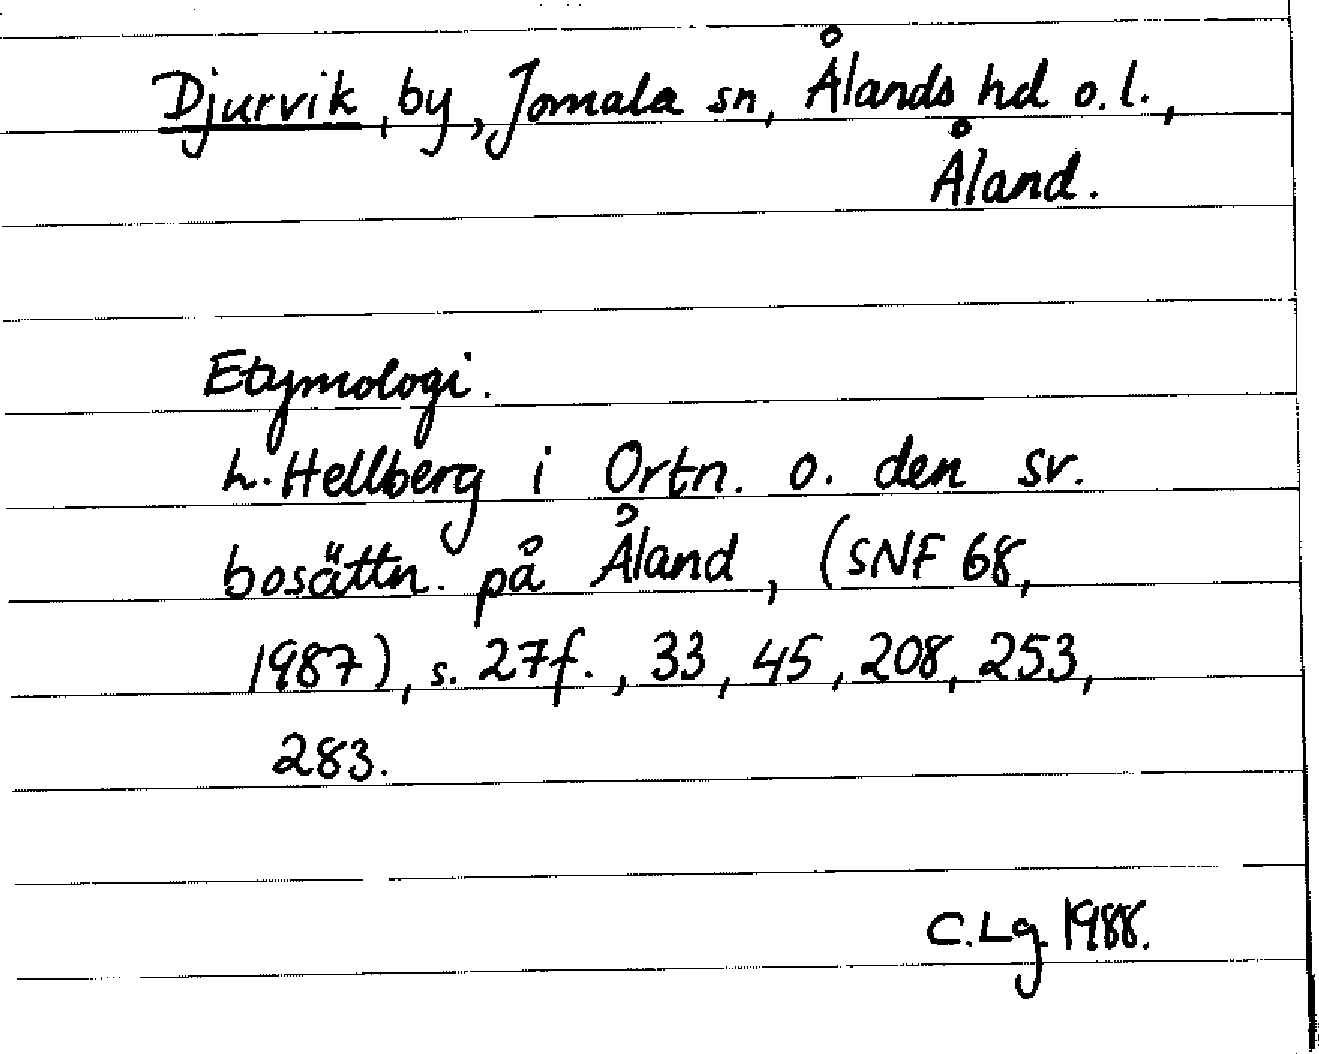 Djurvik, by, Jomala sn, Ålands hd o. l.,
Åland.
Etymologi.
L. Hellberg i Ortn. o. den sv.
bosättn. på Åland, (SNF 68,
1987), s. 27f., 33, 45, 208, 253,
283.
C. Lg. 1988.